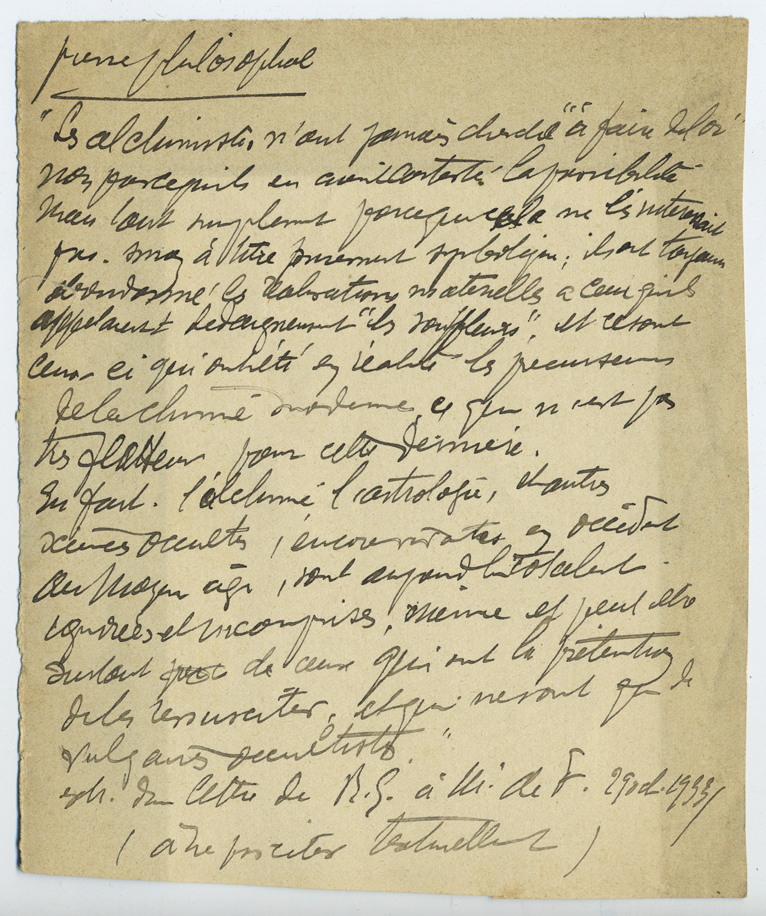 pierre philosophale
"Les alchimistes n'ont jamais cherché "à faire de l'or"
non parcequ'ils en aient contesté la possibilité
mais tout simplement parceque cela ne les intéressait
pas. sinon à titre purement symbolique; ils ont toujours
abandonné les réalisations matérielles à ceux qu'ils
appelaient dédaigneusement "les souffleurs", et ce sont
ceux-ci qui ont été en réalité les précurseurs
de la chimie moderne, ce qui n'est pas
très flatteur pour cette dernière.
En fait. l'alchimie l'astrologie, et autres
sciences occultes, encore vivantes en occident
au Moyen âge, sont aujourd'hui totalement
ignorées et incomprises, même et peut être
surtout de ceux qui ont la prétention
de les ressusciter, et qui ne sont que de
vulgaires occultistes."
extr. d'une lettre de R.G. à M. de F. 29 oct. 1933/
( à ne pas citer textuellement )